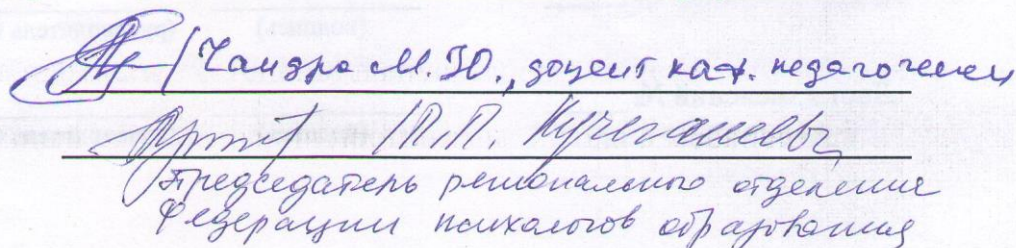 / Чандра М.Ю., доцент каф. педагогики
/ П.П. Кучегашева
Председатель регионального отделения
Федерации психологов образования